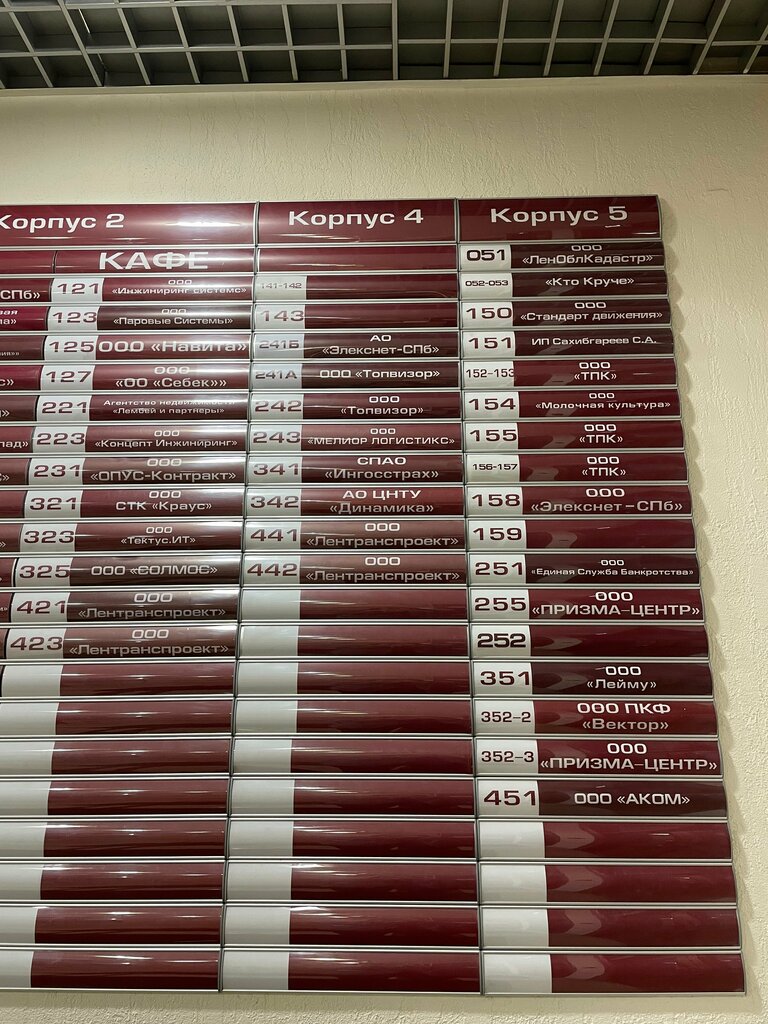 Корпус 2
КАФЕ
СПб»
121
ООО
«Инжиниринг системс»
123
ООО
«Паровые Системы»
125
ООО «Навита»
127
ООО
«ОО «Себек»»
221
Агентство недвижимости
«Лембей и партнеры»
223
ООО
«Концепт Инжиниринг»
231
ООО
«ОПУС-Контракт»
321
ООО
СТК «Краус»
323
ООО
«Тектус.ИТ»
325
ООО «СОЛМОС»
421
ООО
«Лентранспроект»
423
ООО
«Лентранспроект»
Корпус 4
141-142
143
241Б
АО
«Элекснет-СПб»
241А
ООО «Топвизор»
242
ООО
«Топвизор»
243
ООО
«МЕЛИОР ЛОГИСТИКС»
341
СПАО
«Ингосстрах»
342
АО ЦНТУ
«Динамика»
441
ООО
«Лентранспроект»
442
ООО
«Лентранспроект»
Корпус 5
051
ООО
«ЛенОблКадастр»
052-053
«Кто Круче»
150
ООО
«Стандарт движения»
151
ИП Сахибгареев С.А.
152-153
ООО
«ТПК»
154
ООО
«Молочная культура»
155
ООО
«ТПК»
156-157
ООО
«ТПК»
158
ООО
«Элекснет-СПб»
159
251
ООО
«Единая Служба Банкротства»
255
ООО
«ПРИЗМА-ЦЕНТР»
252
351
ООО
«Лейму»
352-2
ООО ПКФ
«Вектор»
352-3
ООО
«ПРИЗМА-ЦЕНТР»
451
ООО «АКОМ»